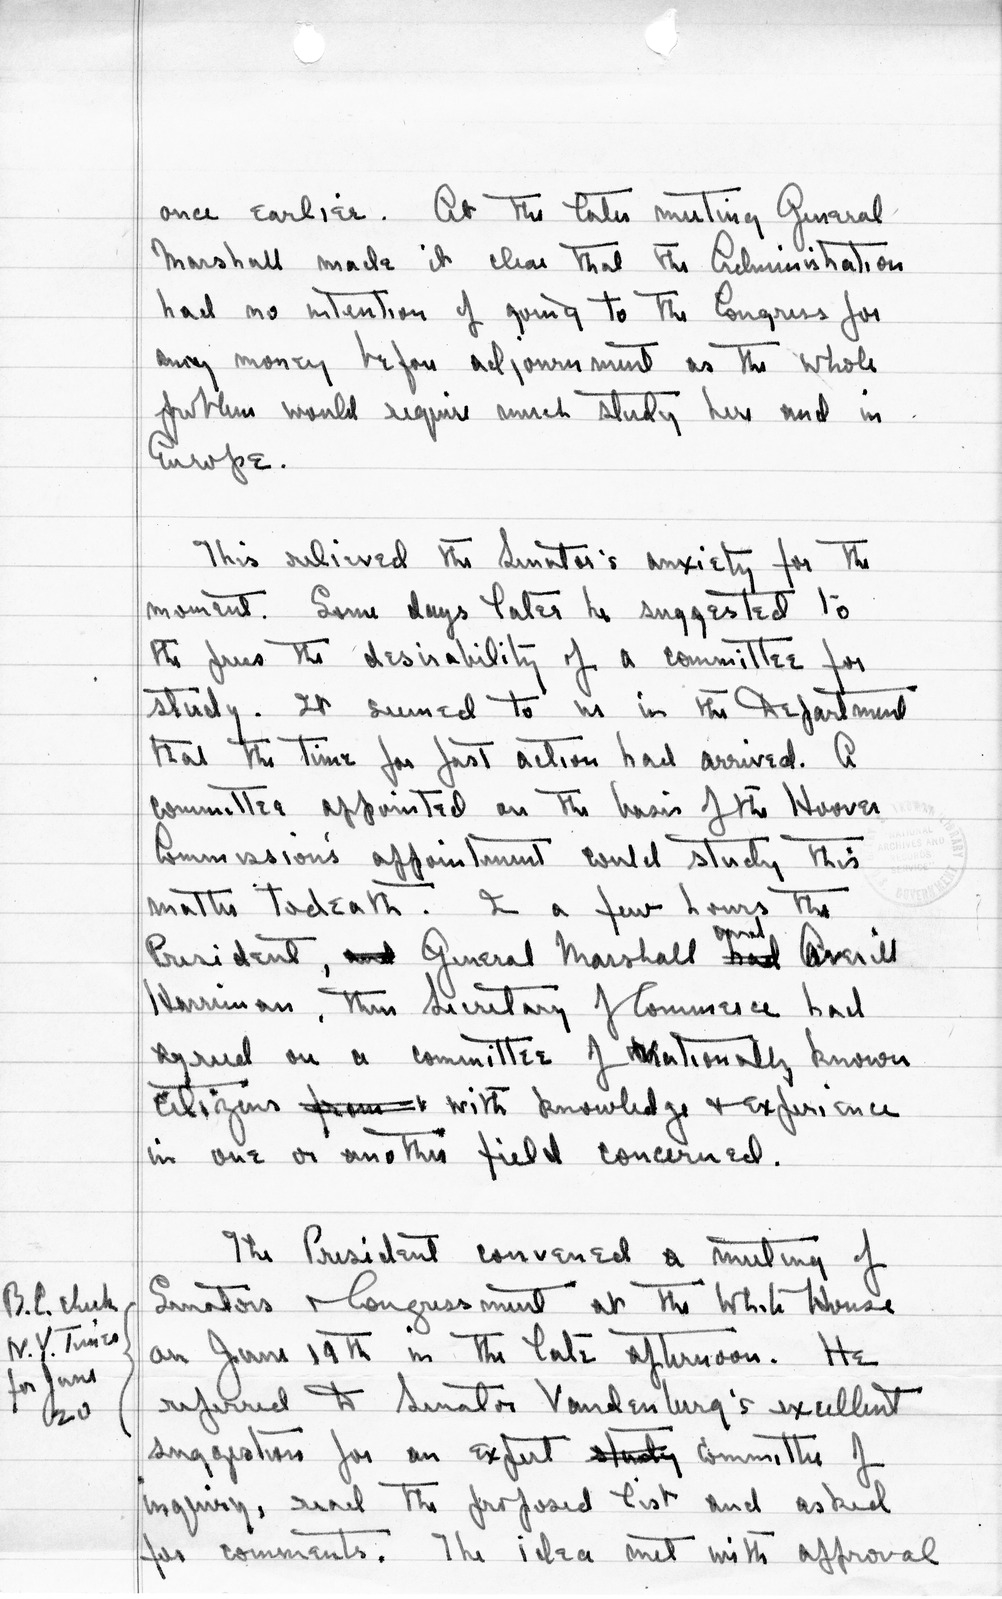 once earlier. At the later meeting General
Marshall made it clear that the Administration
had no intention of going to the Congress for
any money before adjournment as the whole
problem would require much study here and in
Europe.
This relieved the Senator's anxiety for the
moment. Some days later he suggested to
the press the desirability of a committee for
study. It seemed to us in the Department
that the time for fast action had arrived. A
committee appointed on the basis of the Hoover
Commission's appointment could study this
matter to death. In a few hours the
President, and General Marshall had and Averill
Harriman, then Secretary of Commerce had
agreed on a committee of nationally known
citizens from with knowledge & experience
in one or another field concerned.
The President convened a meeting of
Senators & Congressment at the White House
on June 19th in the late afternoon. He
B.C. check
N.Y. Times
for June
20
referred to Senator Vandenburg's excellent
suggestion for an expert study committee of
inquiry, read the proposed list and asked
for comments. The idea met with approval